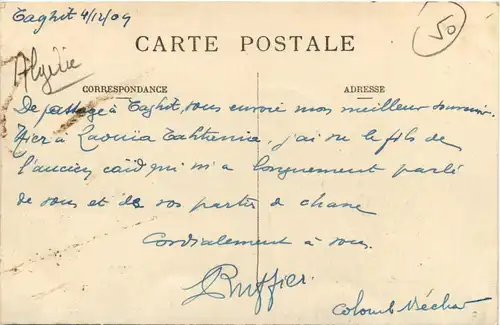 Taghit 4/12/09
50
CARTE POSTALE
Algérie
CORRESPONDANCE
ADRESSE
De passage à Taghit, vous envoie mon meilleur souvenir.
Hier à Zaouïa Tahtania, j'ai vu le fils de
l'ancien caïd qui m'a longuement parlé
de vous et de vos parties de chasse
Cordialement à vous.
Ruffier.
Colomb Béchar